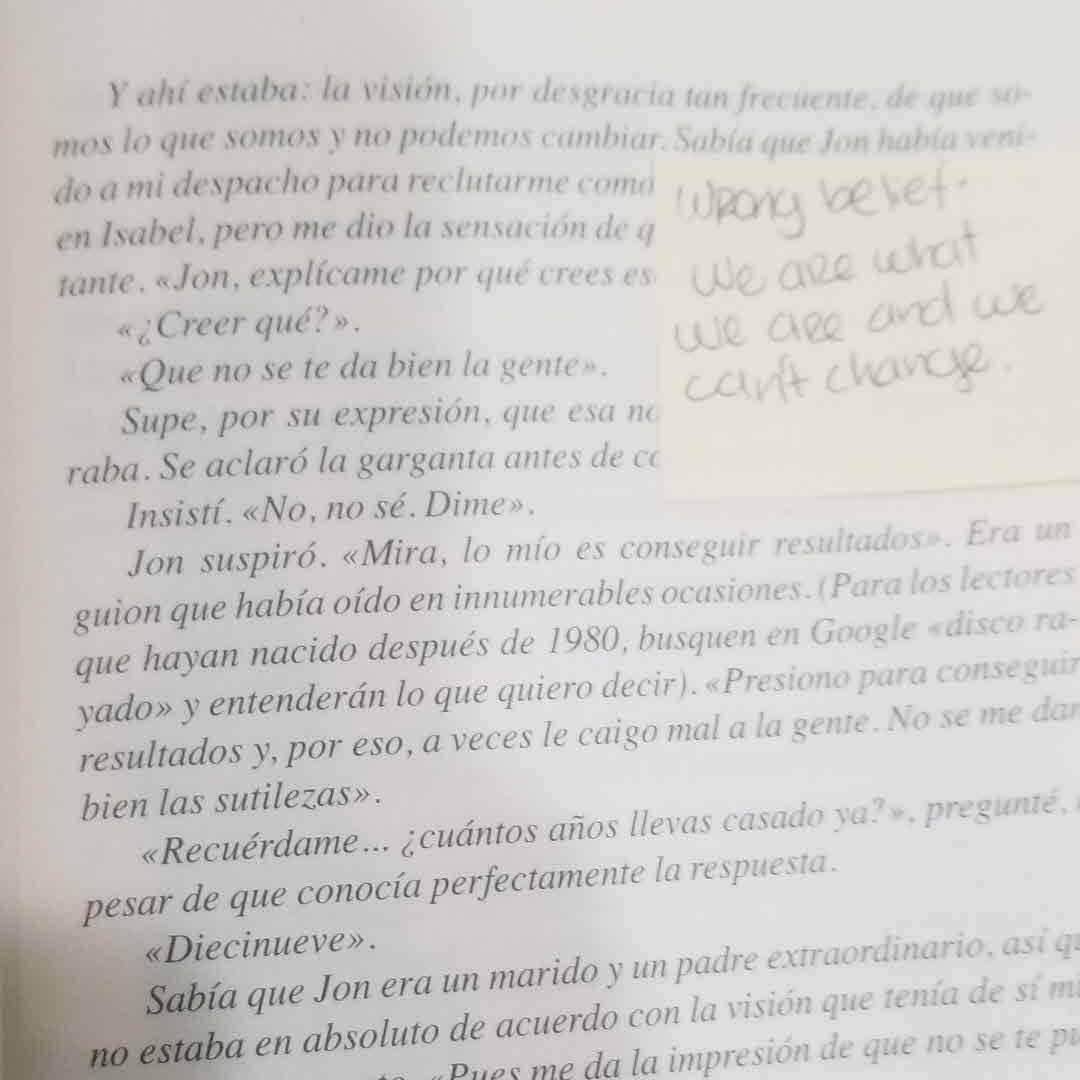 Y ahí estaba: la visión, por desgracia tan frecuente, de que so-
mos lo que somos y no podemos cambiar. Sabía que Jon había veni-
do a mi despacho para reclutarme como
en Isabel, pero me dio la sensación de q
tante. «Jon, explícame por qué crees es
«¿Creer qué?».
«Que no se te da bien la gente».
Supe, por su expresión, que esa no
raba. Se aclaró la garganta antes de co
Insistí. «No, no sé. Dime».
Jon suspiró. «Mira, lo mío es conseguir resultados». Era un
guion que había oído en innumerables ocasiones. (Para los lectores
que hayan nacido después de 1980, busquen en Google «disco ra-
yado» y entenderán lo que quiero decir). «Presiono para conseguir
resultados y, por eso, a veces le caigo mal a la gente. No se me dan
bien las sutilezas».
«Recuérdame... ¿cuántos años llevas casado ya?», pregunté,
pesar de que conocía perfectamente la respuesta.
«Diecinueve».
Sabía que Jon era un marido y un padre extraordinario, así qu
no estaba en absoluto de acuerdo con la visión que tenía de sí mi
«Pues me da la impresión de que no se te pu
Wrong belief.
We are what
we are and we
can't change.